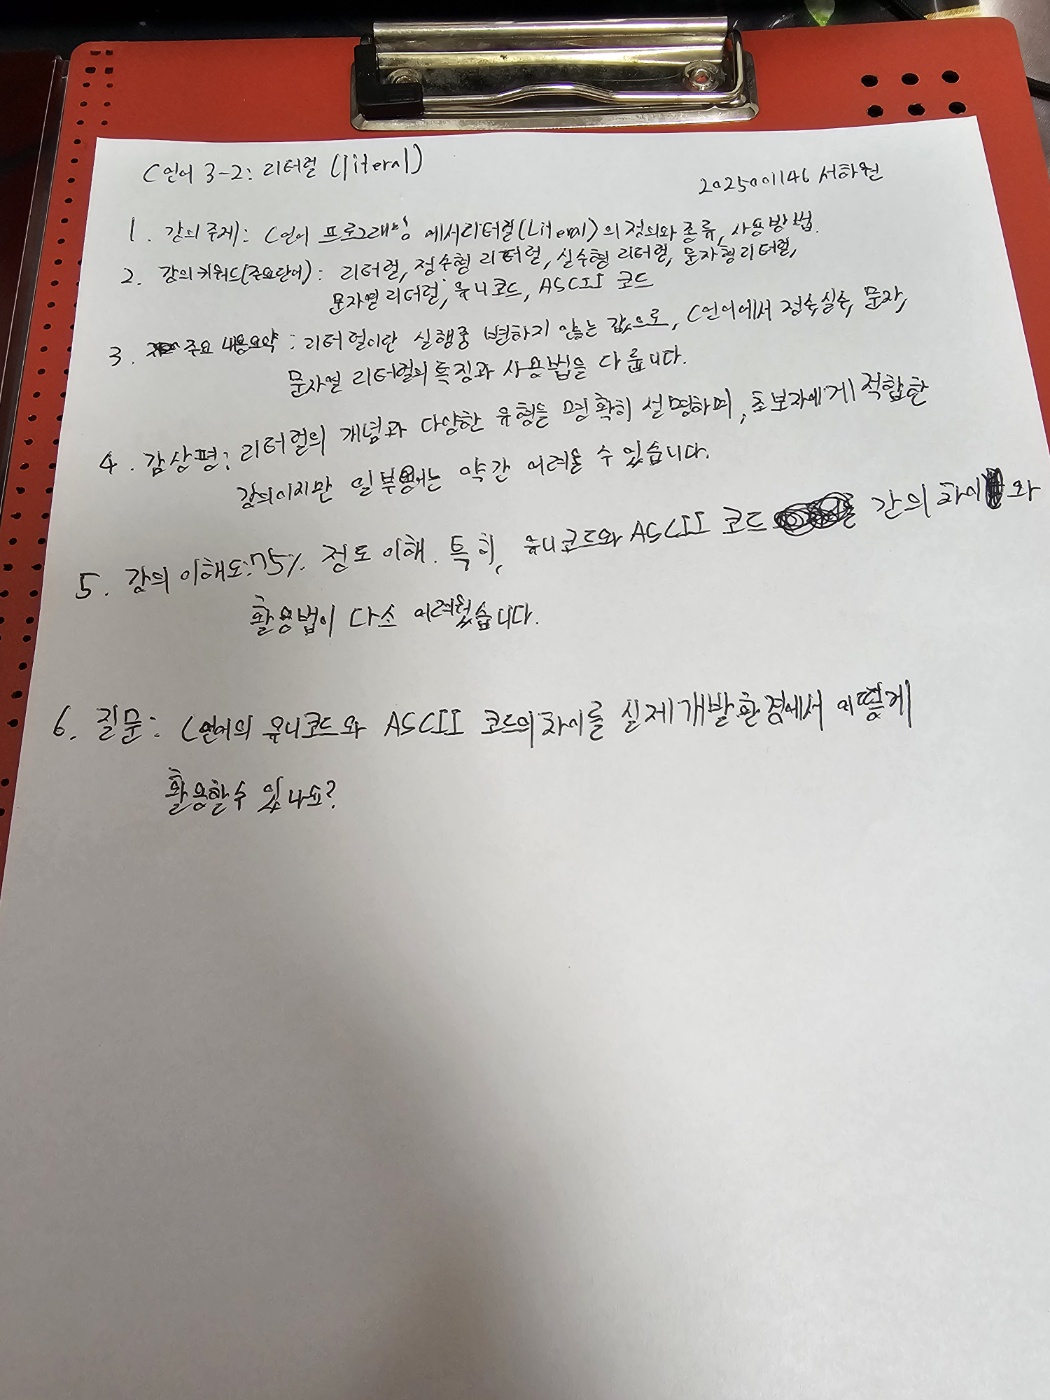 C언어 3-2: 리터럴 (literal)
2025001146 서하원
1. 강의 주제: C언어 프로그래밍 에서 리터럴(Literal)의 정의와 종류, 사용방법.
2. 강의 키워드(주요단어): 리터럴, 정수형 리터럴, 실수형 리터럴, 문자형 리터럴,
문자열 리터럴, 유니코드, ASCII 코드
3. 주요 내용요약: 리터럴이란 실행중 변하지 않는 값으로, C언어에서 정수, 실수, 문자,
문자열 리터럴의 특징과 사용법을 다룹니다.
4. 감상평: 리터럴의 개념과 다양한 유형을 명확히 설명하며, 초보자에게 적합한
강의이지만 일부 용어는 약간 어려울 수 있습니다.
5. 강의 이해도: 75% 정도 이해. 특히, 유니코드와 ASCII 코드 간의 차이와
활용법이 다소 어려웠습니다.
6. 질문: C언어의 유니코드와 ASCII 코드의 차이를 실제 개발 환경에서 어떻게
활용할 수 있나요?